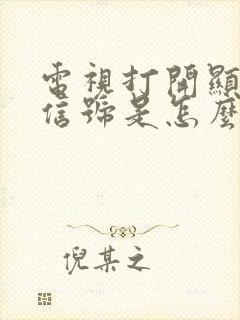 電視打開顯
信號是怎麼
倪某之